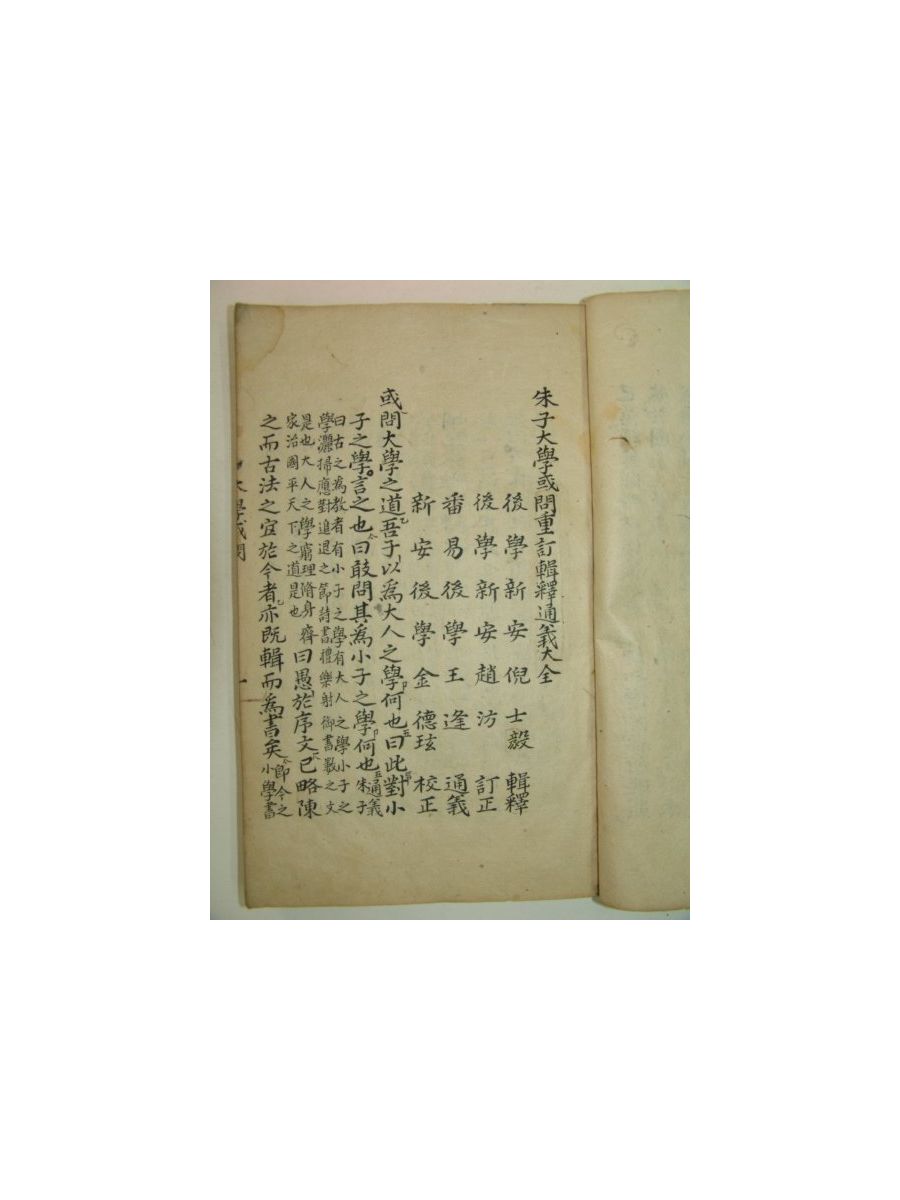 朱子大學或問重訂輯釋通義大全
後學新安倪士毅輯釋
後學新安趙汸訂正
番易後學王逢通義
新安後學金德玹校正
或問大學之道吾子以爲大人之學何也曰此對小
子之學言之也曰敢問其爲小子之學何也通義朱子
曰古之爲教者有小子之學有大人之學小子之
學灑掃應對進退之節詩書禮樂射御書數之文
是也大人之學窮理脩身齊
家治國平天下之道是也曰愚於序文已略陳
之而古法之宜於今者亦既輯而爲書矣即今之小學書
大學或問 一